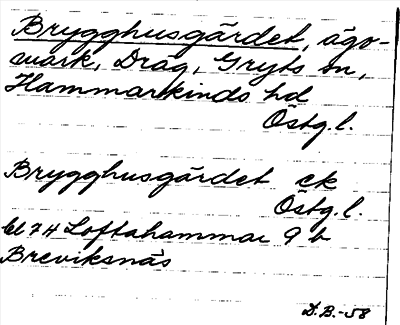 Brygghusgärdet, ägo-
mark, Drag, Gryts sn,
Hammarkinds hd
Östg.l.
Brygghusgärdet ek
Östg.l.
bl 74 Loftahammar 9 b
Breviksnäs
D.B.-58